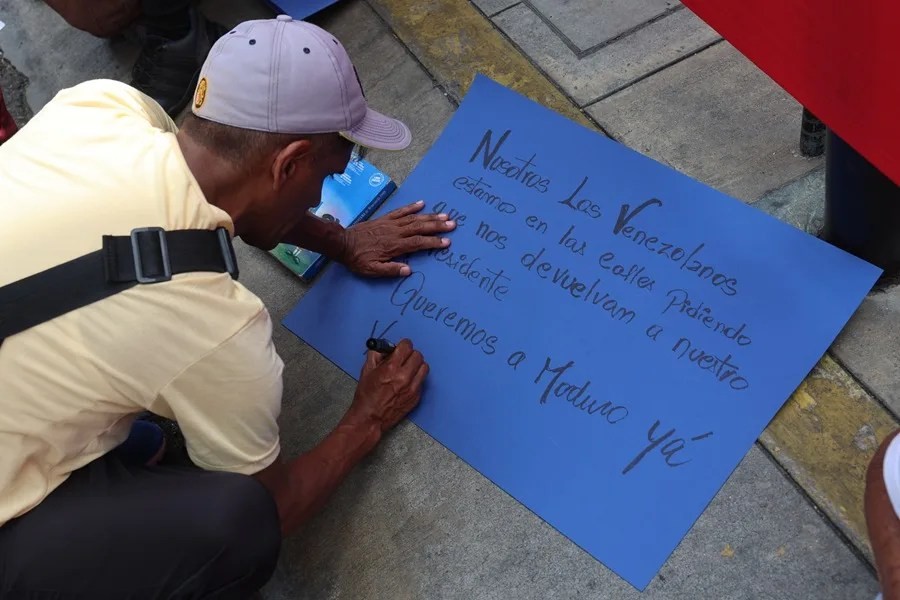 Nosotros Los Venezolanos
estamo en las calles Pidiendo
que nos devuelvan a nuestro
residente
Queremos a Maduro yá